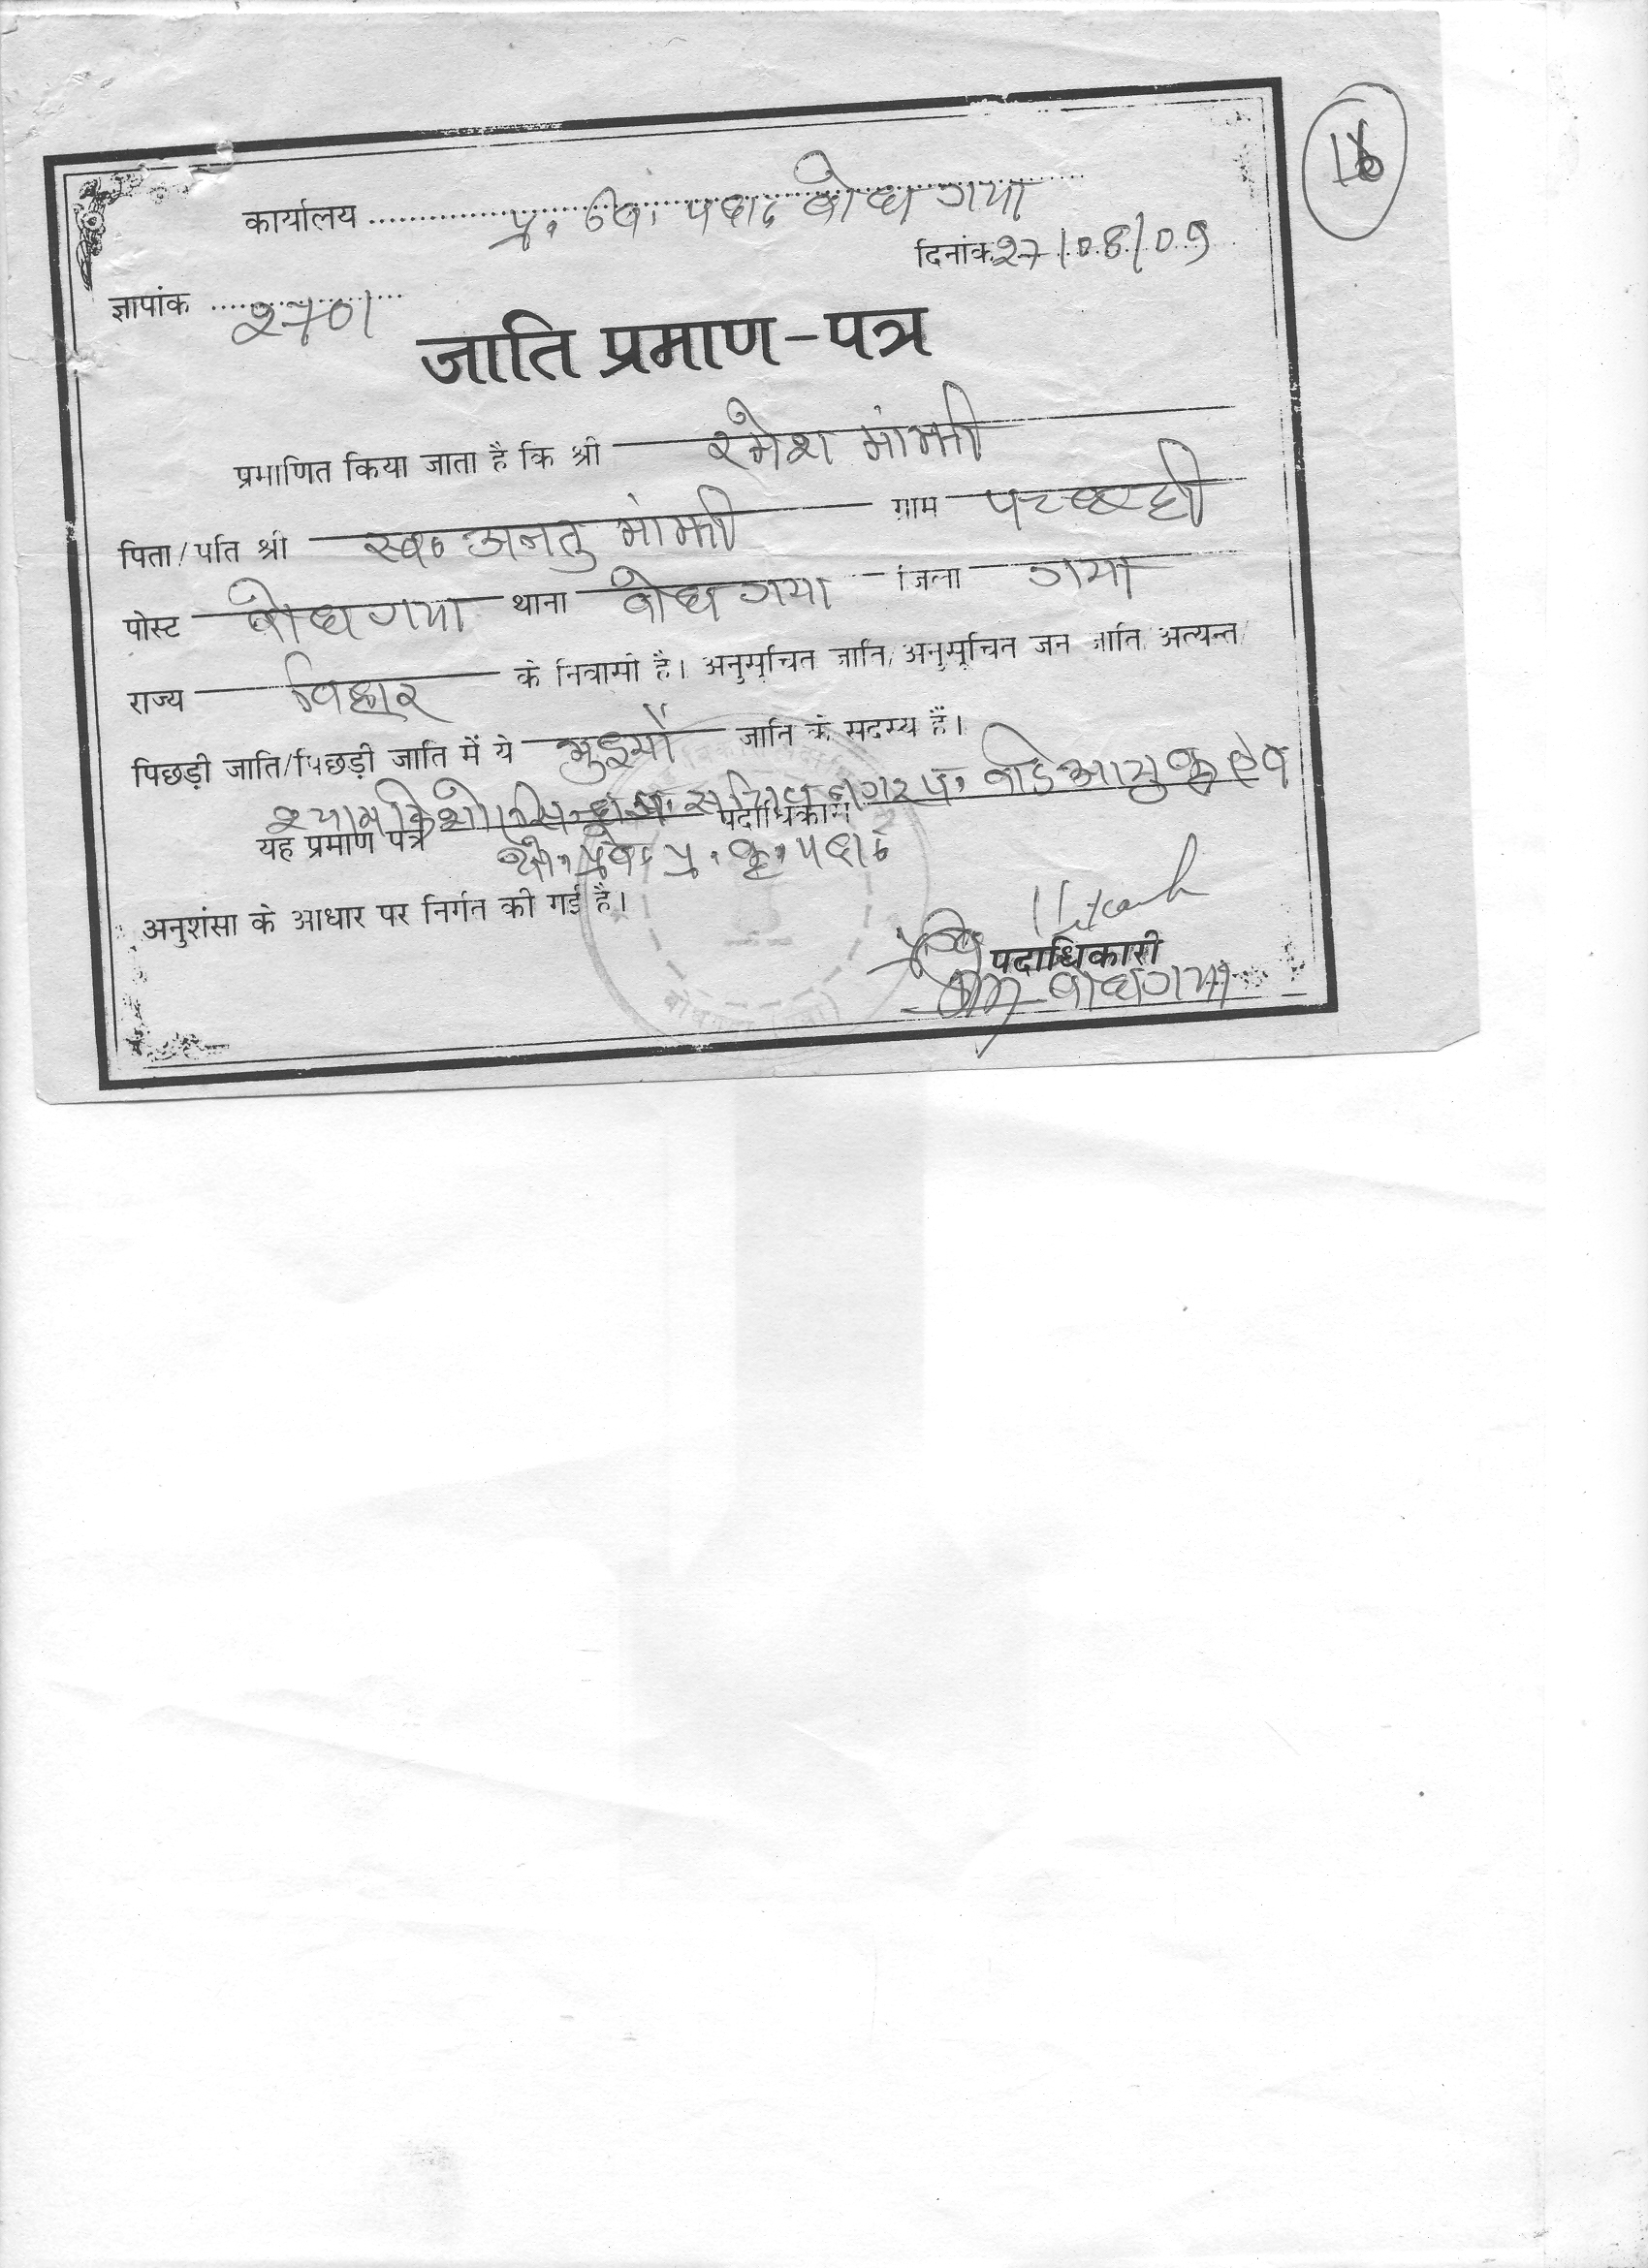 कार्यालय प्र. वि. पदा. बोधगया
दिनांक 27/08/09
ज्ञापांक 2701
जाति प्रमाण-पत्र
प्रमाणित किया जाता है कि श्री रमेश मांझी
पिता/पति श्री स्व० अनतु मांझी ग्राम
पोस्ट बोधगया थाना बोधगया जिला गया
राज्य बिहार के निवासी है। अनुसूचित जाति/अनुसूचित जन जाति/अत्यन्त/
पिछड़ी जाति/पिछड़ी जाति में ये भुइयाँ जाति के सदस्य हैं।
श्याम किशोर
यह प्रमाण पत्र पदाधिकारी
अनुशंसा के आधार पर निर्गत की गई है।
पदाधिकारी
बोधगया